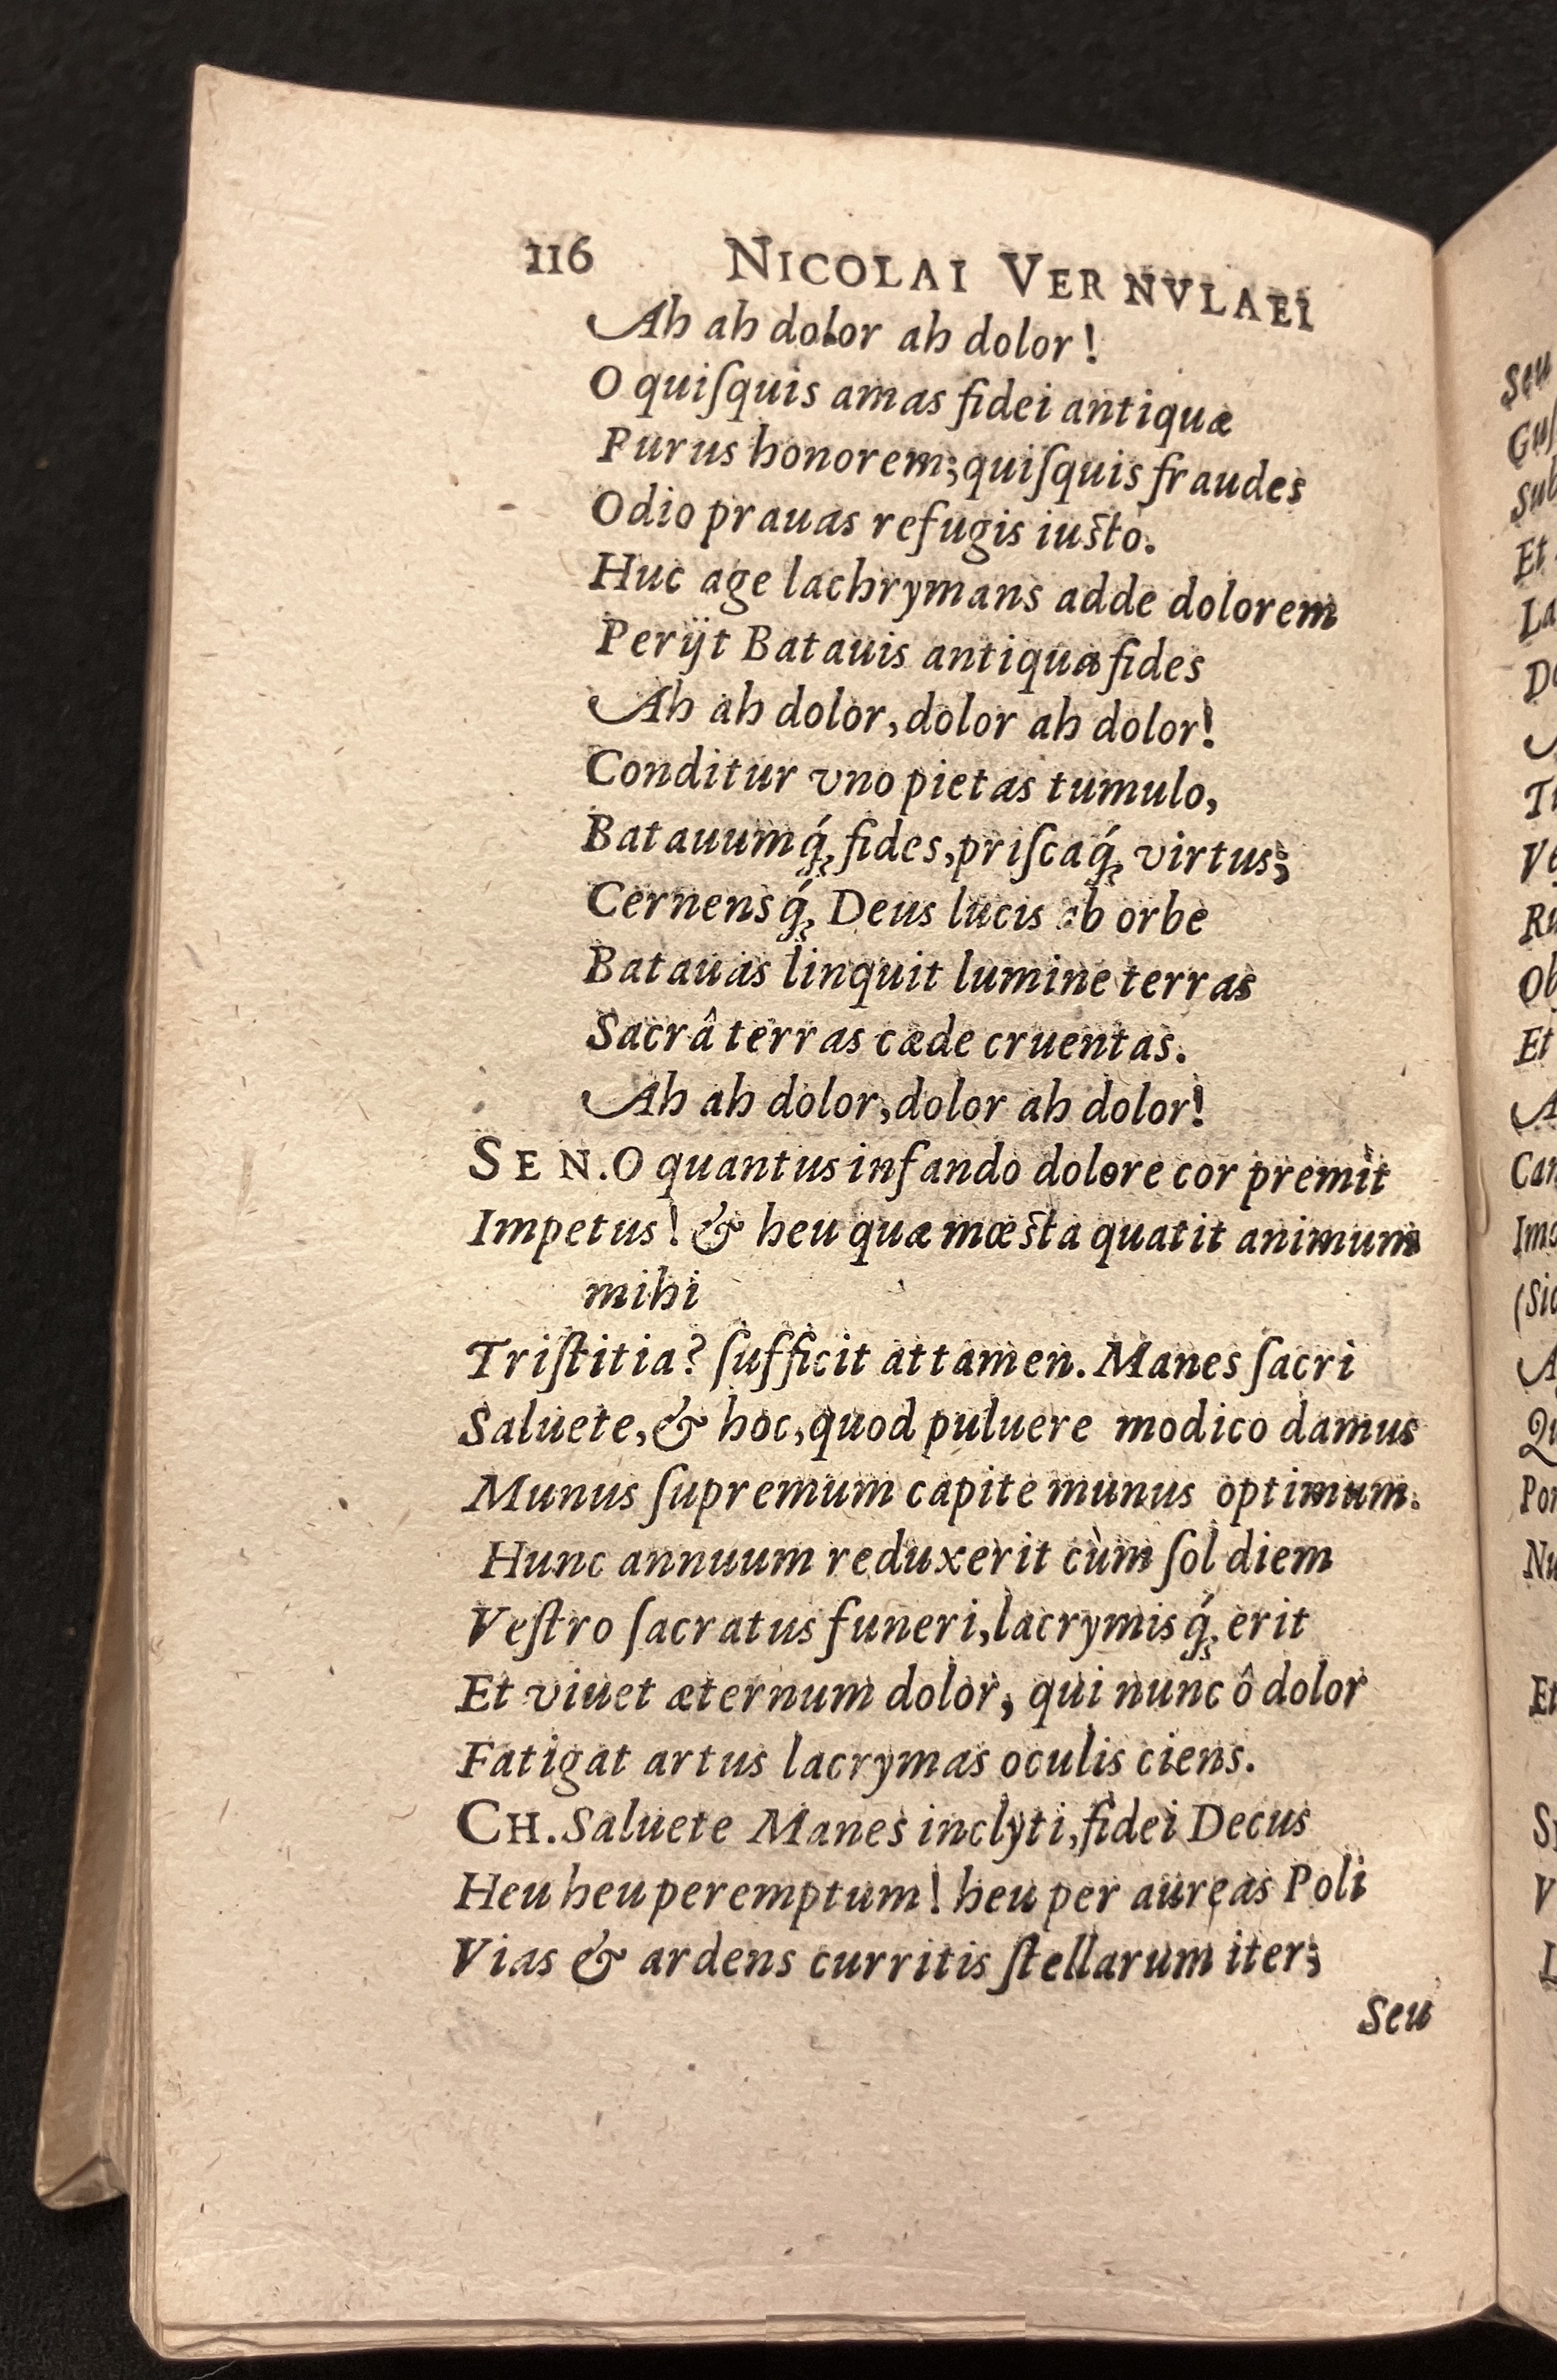 116 NICOLAI VERNVLAEI
Ah ah dolor ah dolor!
O quiſquis amas fidei antiquæ
Purus honorem; quiſquis fraudes
Odio prauas refugis iuſto.
Huc age lachrymans adde dolorem
Perijt Batauis antiqua fides
Ah ah dolor, dolor ah dolor!
Conditur vno pietas tumulo,
Batauumq́; fides, priſcaq́; virtus;
Cernensq́; Deus lucis ab orbe
Batauas linquit lumine terras
Sacrâ terras cæde cruentas.
Ah ah dolor, dolor ah dolor!
SEN. O quantus infando dolore cor premit
Impetus! & heu quæ mœſta quatit animum
mihi
Triſtitia? ſufficit attamen. Manes ſacri
Saluete, & hoc, quod puluere modico damus
Munus ſupremum capite munus optimum.
Hunc annuum reduxerit cùm ſol diem
Veſtro ſacratus funeri, lacrymisq́; erit
Et viuet æternum dolor, qui nunc ô dolor
Fatigat artus lacrymas oculis ciens.
CH. Saluete Manes inclyti, fidei Decus
Heu heu peremptum! heu per aureas Poli
Vias & ardens curritis ſtellarum iter;
Seu
Seu
Et